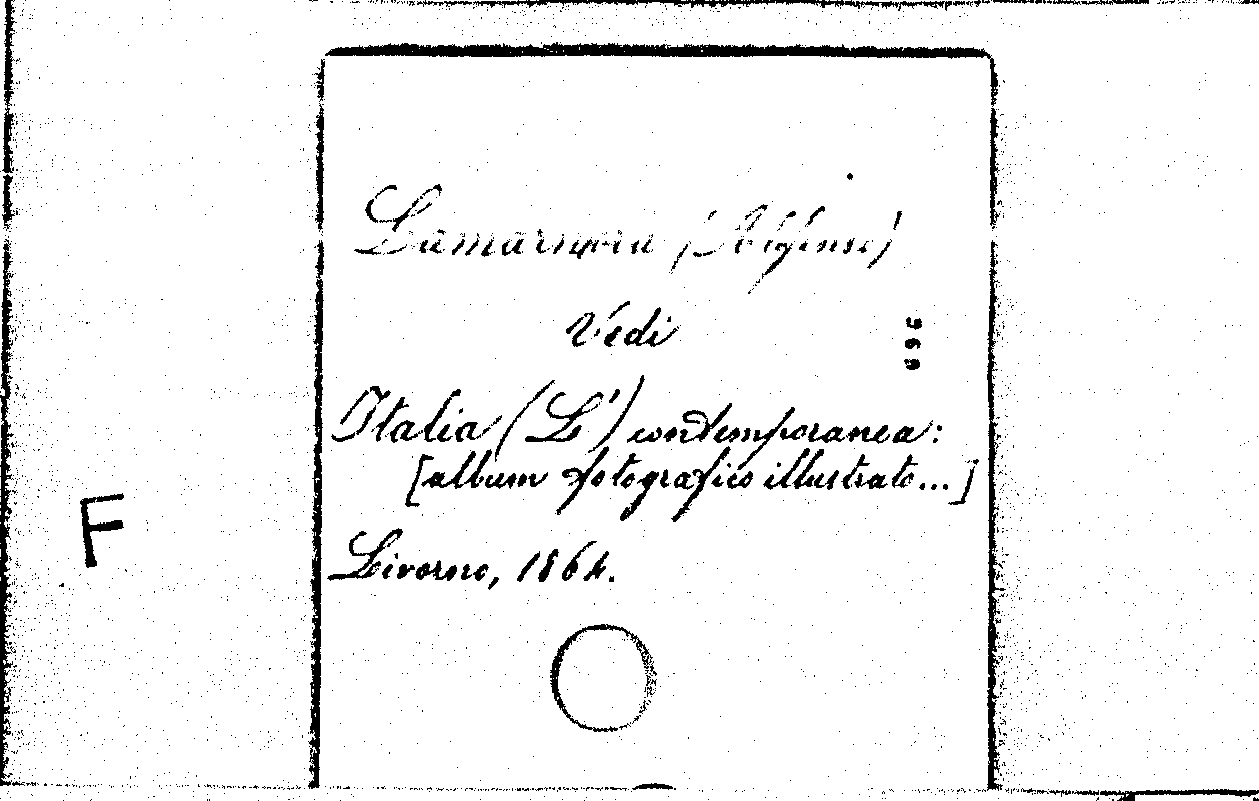 Lamarmora (Alfonso)
Vedi
Italia (L') contemporanea:
[album fotografico illustrato...]
F
Livorno, 1864.